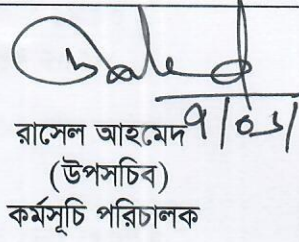 রাসেল আহমেদ
(উপসচিব)
কর্মসূচি পরিচালক